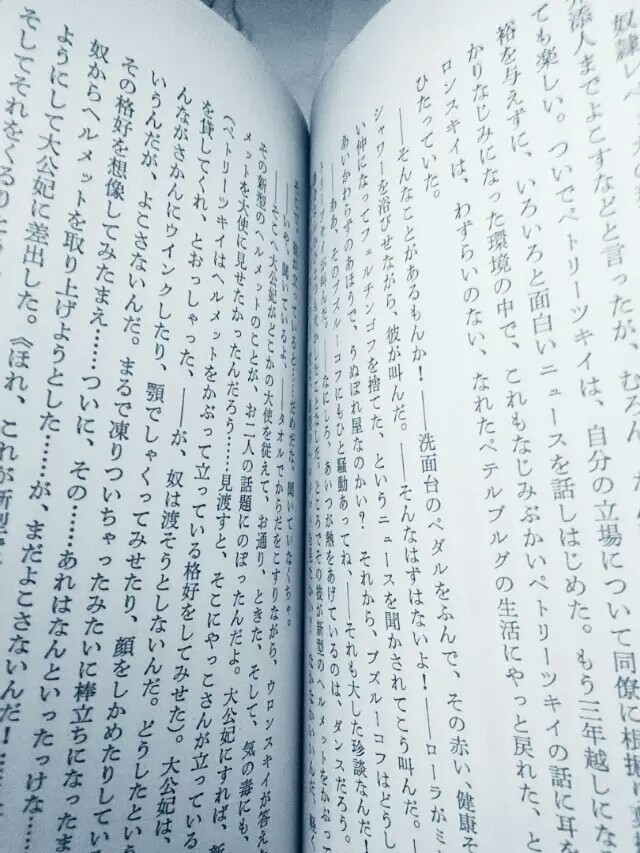 奴隷レベ
添人までよこすなどと言ったが、むろん
ても楽しい。ついでペトリーツキイは、自分の立場について同僚に根掘り葉
裕を与えずに、いろいろと面白いニュースを話しはじめた。もう三年越しにな
かりなじみになった環境の中で、これもなじみぶかいペトリーツキイの話に耳を
ロンスキイは、わずらいのない、なれたペテルブルグの生活にやっと戻れた、と
ひたっていた。
――そんなことがあるもんか！――洗面台のペダルをふんで、その赤い、健康そ
シャワーを浴びせながら、彼が叫んだ。――そんなはずはないよ！――ローラがミ
い仲になってフェルチンゴフを捨てた、というニュースを聞かされてこう叫んだ。――
あいかわらずのあほうで、うぬぼれ屋なのかい？　それから、ブズルーコフはどうし
――ああ、そのブズルーコフにもひと騒動あってね、――それも大した珍談なんだ！
叫んだ。――なにしろ、あいつが熱をあげているのは、ダンスだろう。
ところでその彼が新型のヘルメットをかぶって
――いや、聞いているよ、――タオルでからだをこすりながら、ウロンスキイが答え
――そこへ大公妃がどこかの大使を従えて、お通り、ときた、そして、気の毒にも、
その新型のヘルメットのことが、お二人の話題にのぼったんだよ。大公妃にすれば、新
メットを大使に見せたかったんだろう……見渡すと、そこにやっこさんが立っている
（ペトリーツキイはヘルメットをかぶって立っている格好をしてみせた）。大公妃は、
を貸してくれ、とおっしゃった、――が、奴は渡そうとしないんだ。どうしたという
んながさかんにウインクしたり、顎でしゃくってみせたり、顔をしかめたりしている
いうんだが、よこさないんだ。まるで凍りついちゃったみたいに棒立ちになったま
その格好を想像してみたまえ……ついに、その……あれはなんといったっけな……
奴からヘルメットを取り上げようとした……が、まだよこさないんだ！……
ようにして大公妃に差出した。《ほれ、これが新型で
そしてそれをくるりと